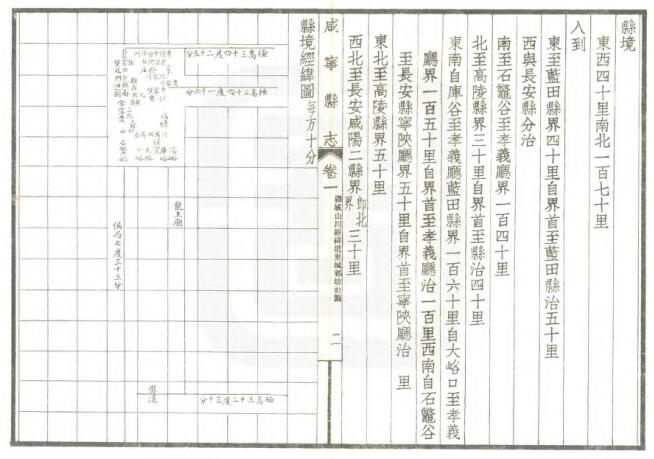 縣境
東西四十里南北一百七十里
入到
東至藍田縣界四十里自界首至藍田縣治五十里
西與長安縣分治
南至石鼈谷至孝義廳界一百四十里
北至高陵縣界三十里自界首至縣治四十里
東南自庫谷至孝義廳藍田縣界一百六十里自大峪口至孝義
廳界一百五十里自界首至孝義廳治一百里西南自石鼈谷
至長安縣寧陝廳界五十里自界首至寧陝廳治 里
東北至高陵縣界五十里
西北至長安咸陽二縣界即北界三十里
咸寧縣志
卷一
疆域山川經緯道里城郭坊社圖
二
縣境經緯圖每方十分
極高三十四度二十五分
極高三十四度一十六分
龍王廟
偏西七度三十三分
極高三十三度三十分